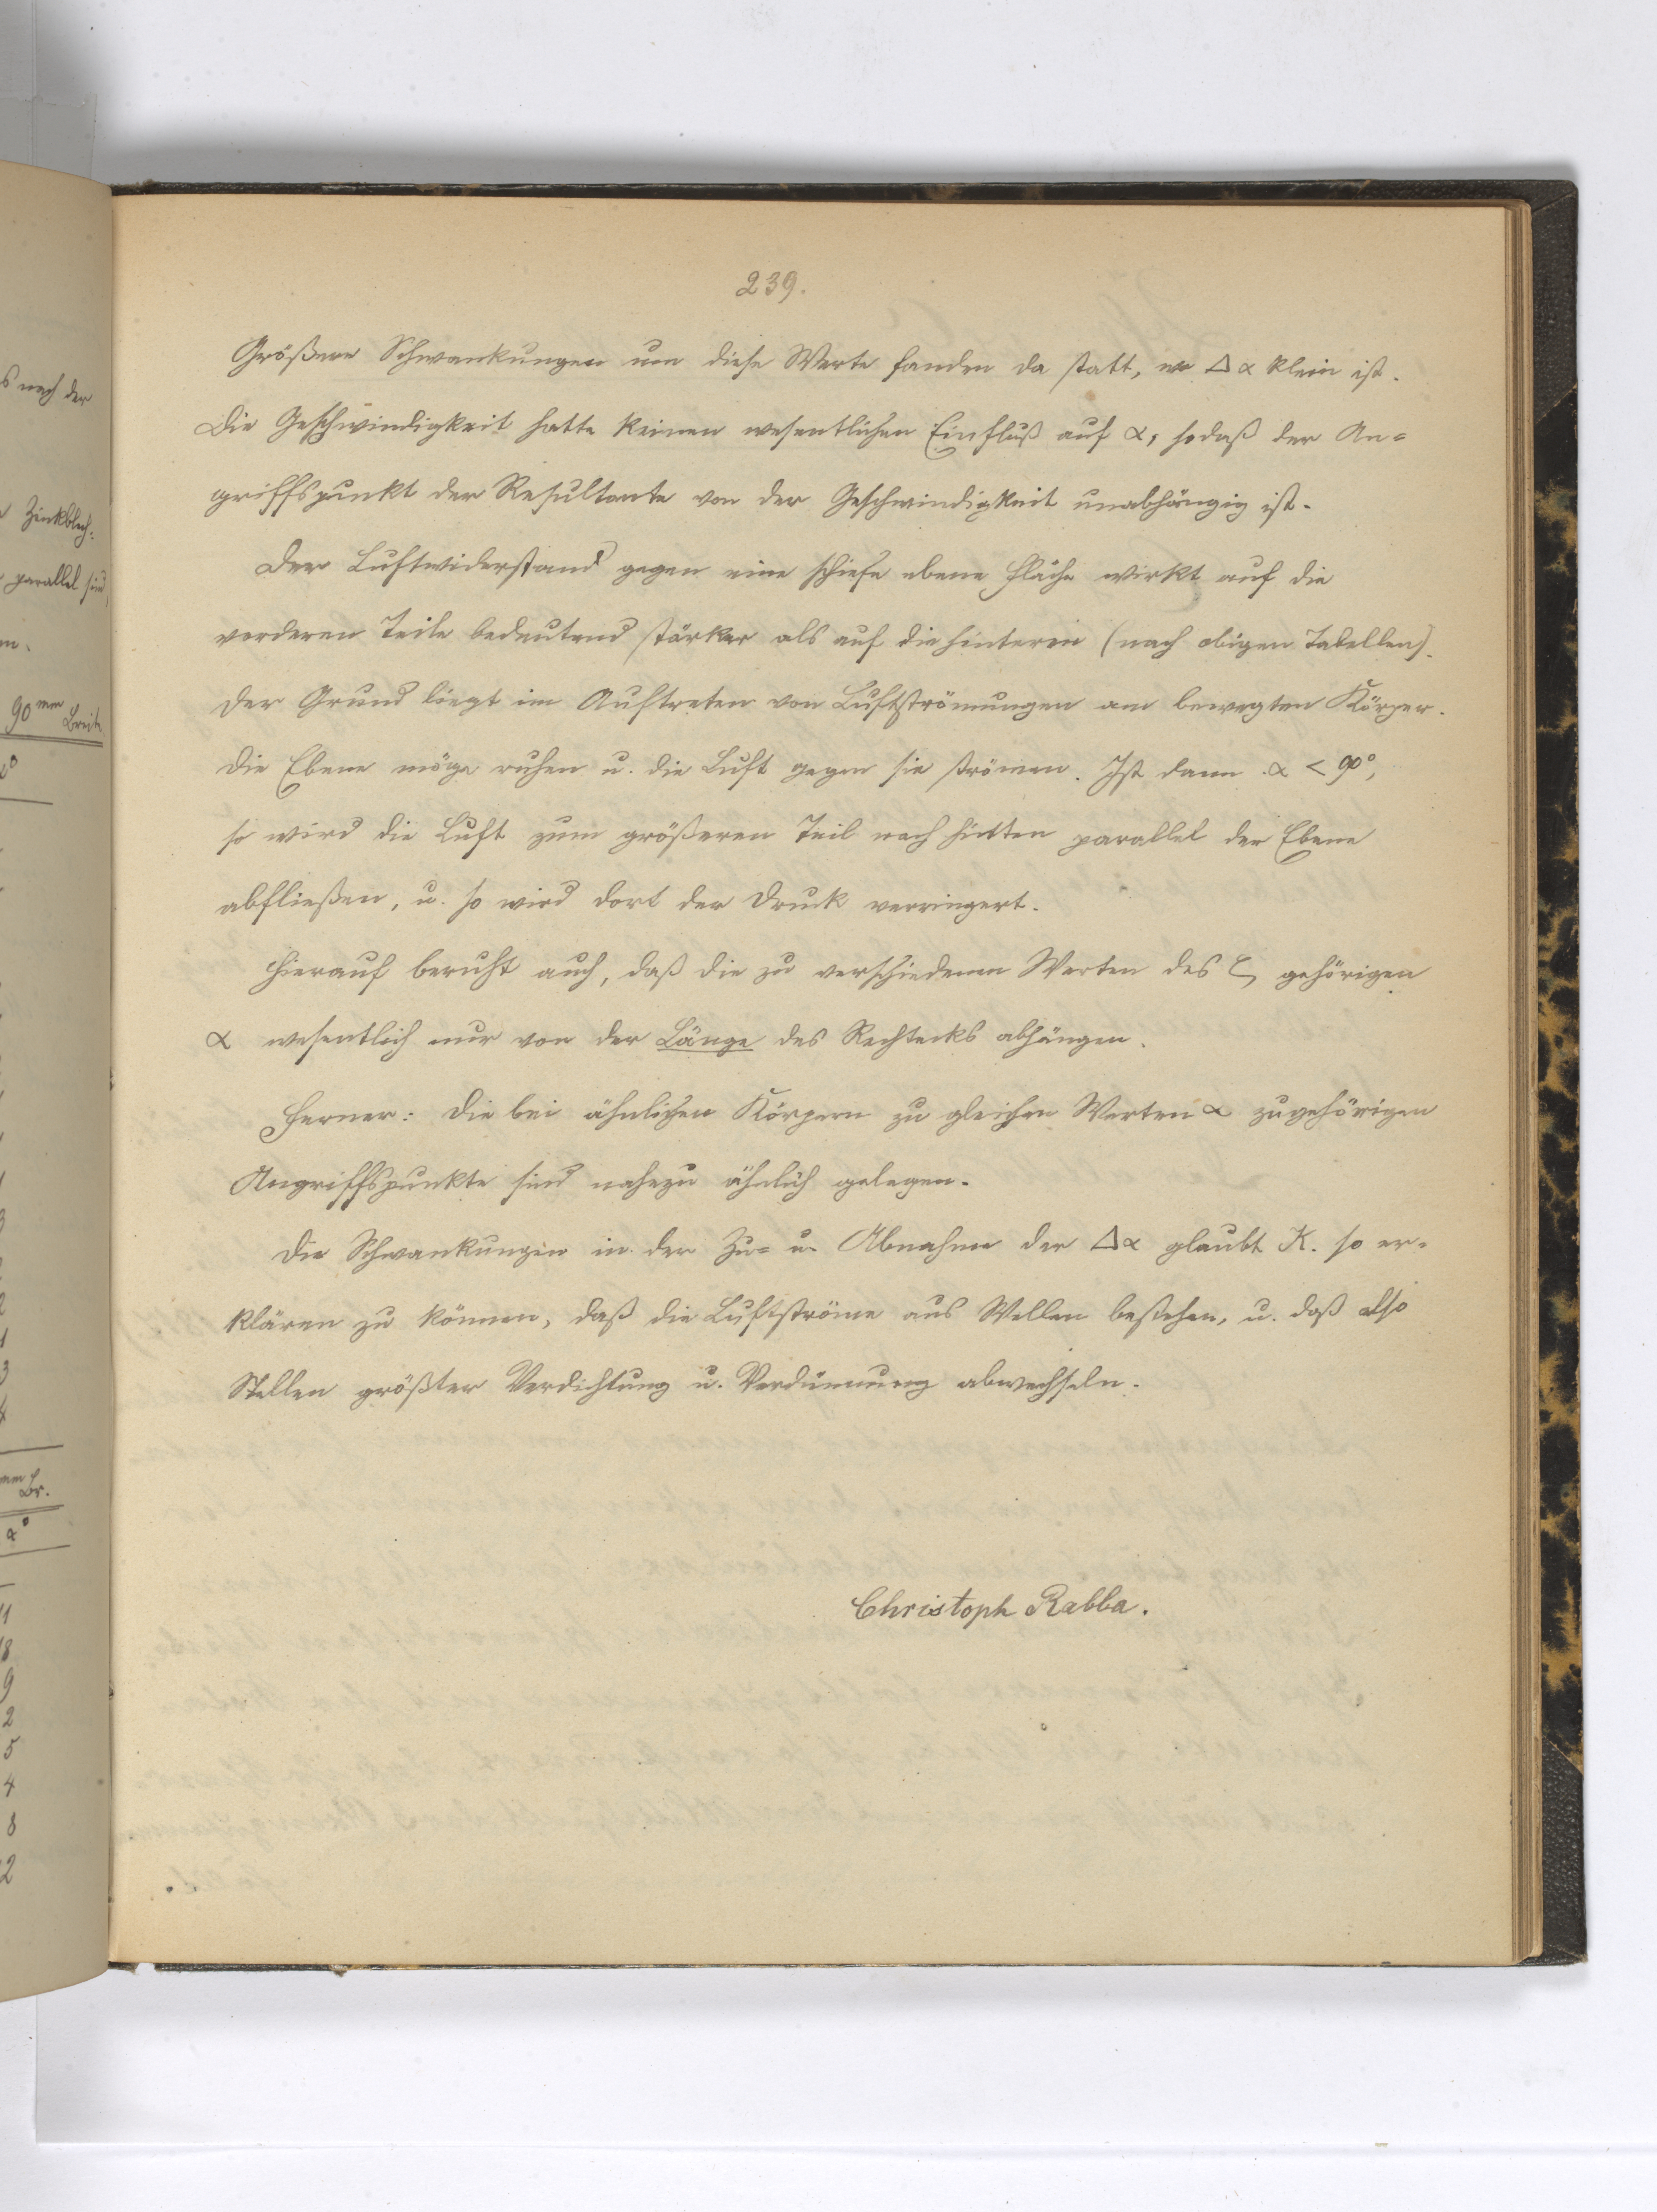 239.
Größere Schwankungen um diese Werte fanden da statt, wo Δα klein ist.
Die Geschwindigkeit hatte keinen wesentlichen Einfluß auf α, sodaß der An=
griffspunkt der Resultante von der Geschwindigkeit unabhängig ist.
Der Luftwiderstand gegen eine schiefe ebene Fläche wirkt auf die
vorderen Teile bedeutend stärker als auf die hinteren (nach obigen Tabellen).
Der Grund liegt im Auftreten von Luftströmungen am bewegten Körper.
Die Ebene möge ruhen u. die Luft gegen sie strömen. Ist dann α < 90°,
so wird die Luft zum größeren Teil nach hinten parallel der Ebene
abfließen, u. so wird dort der Druck verringert.
Hierauf beruht auch, daß die zu verschiedenen Werten des ζ gehörigen
α wesentlich nur von der Länge des Rechtecks abhängen.
Ferner: Die bei ähnlichen Körpern zu gleichen Werten α zugehörigen
Angriffspunkte sind nahezu ähnlich gelegen.
Die Schwankungen in der Zu= u. Abnahme der Δα glaubt K. so er=
klären zu können, daß die Luftströme aus Wellen bestehen, u. daß also
Stellen größter Verdichtung u. Verdünnung abwechseln.
Christoph Rabba.
s nach der
Zinkblech:
parallel sind,
90 mm Breite
α°
mm Br.
α°
11
18
9
2
5
4
8
12